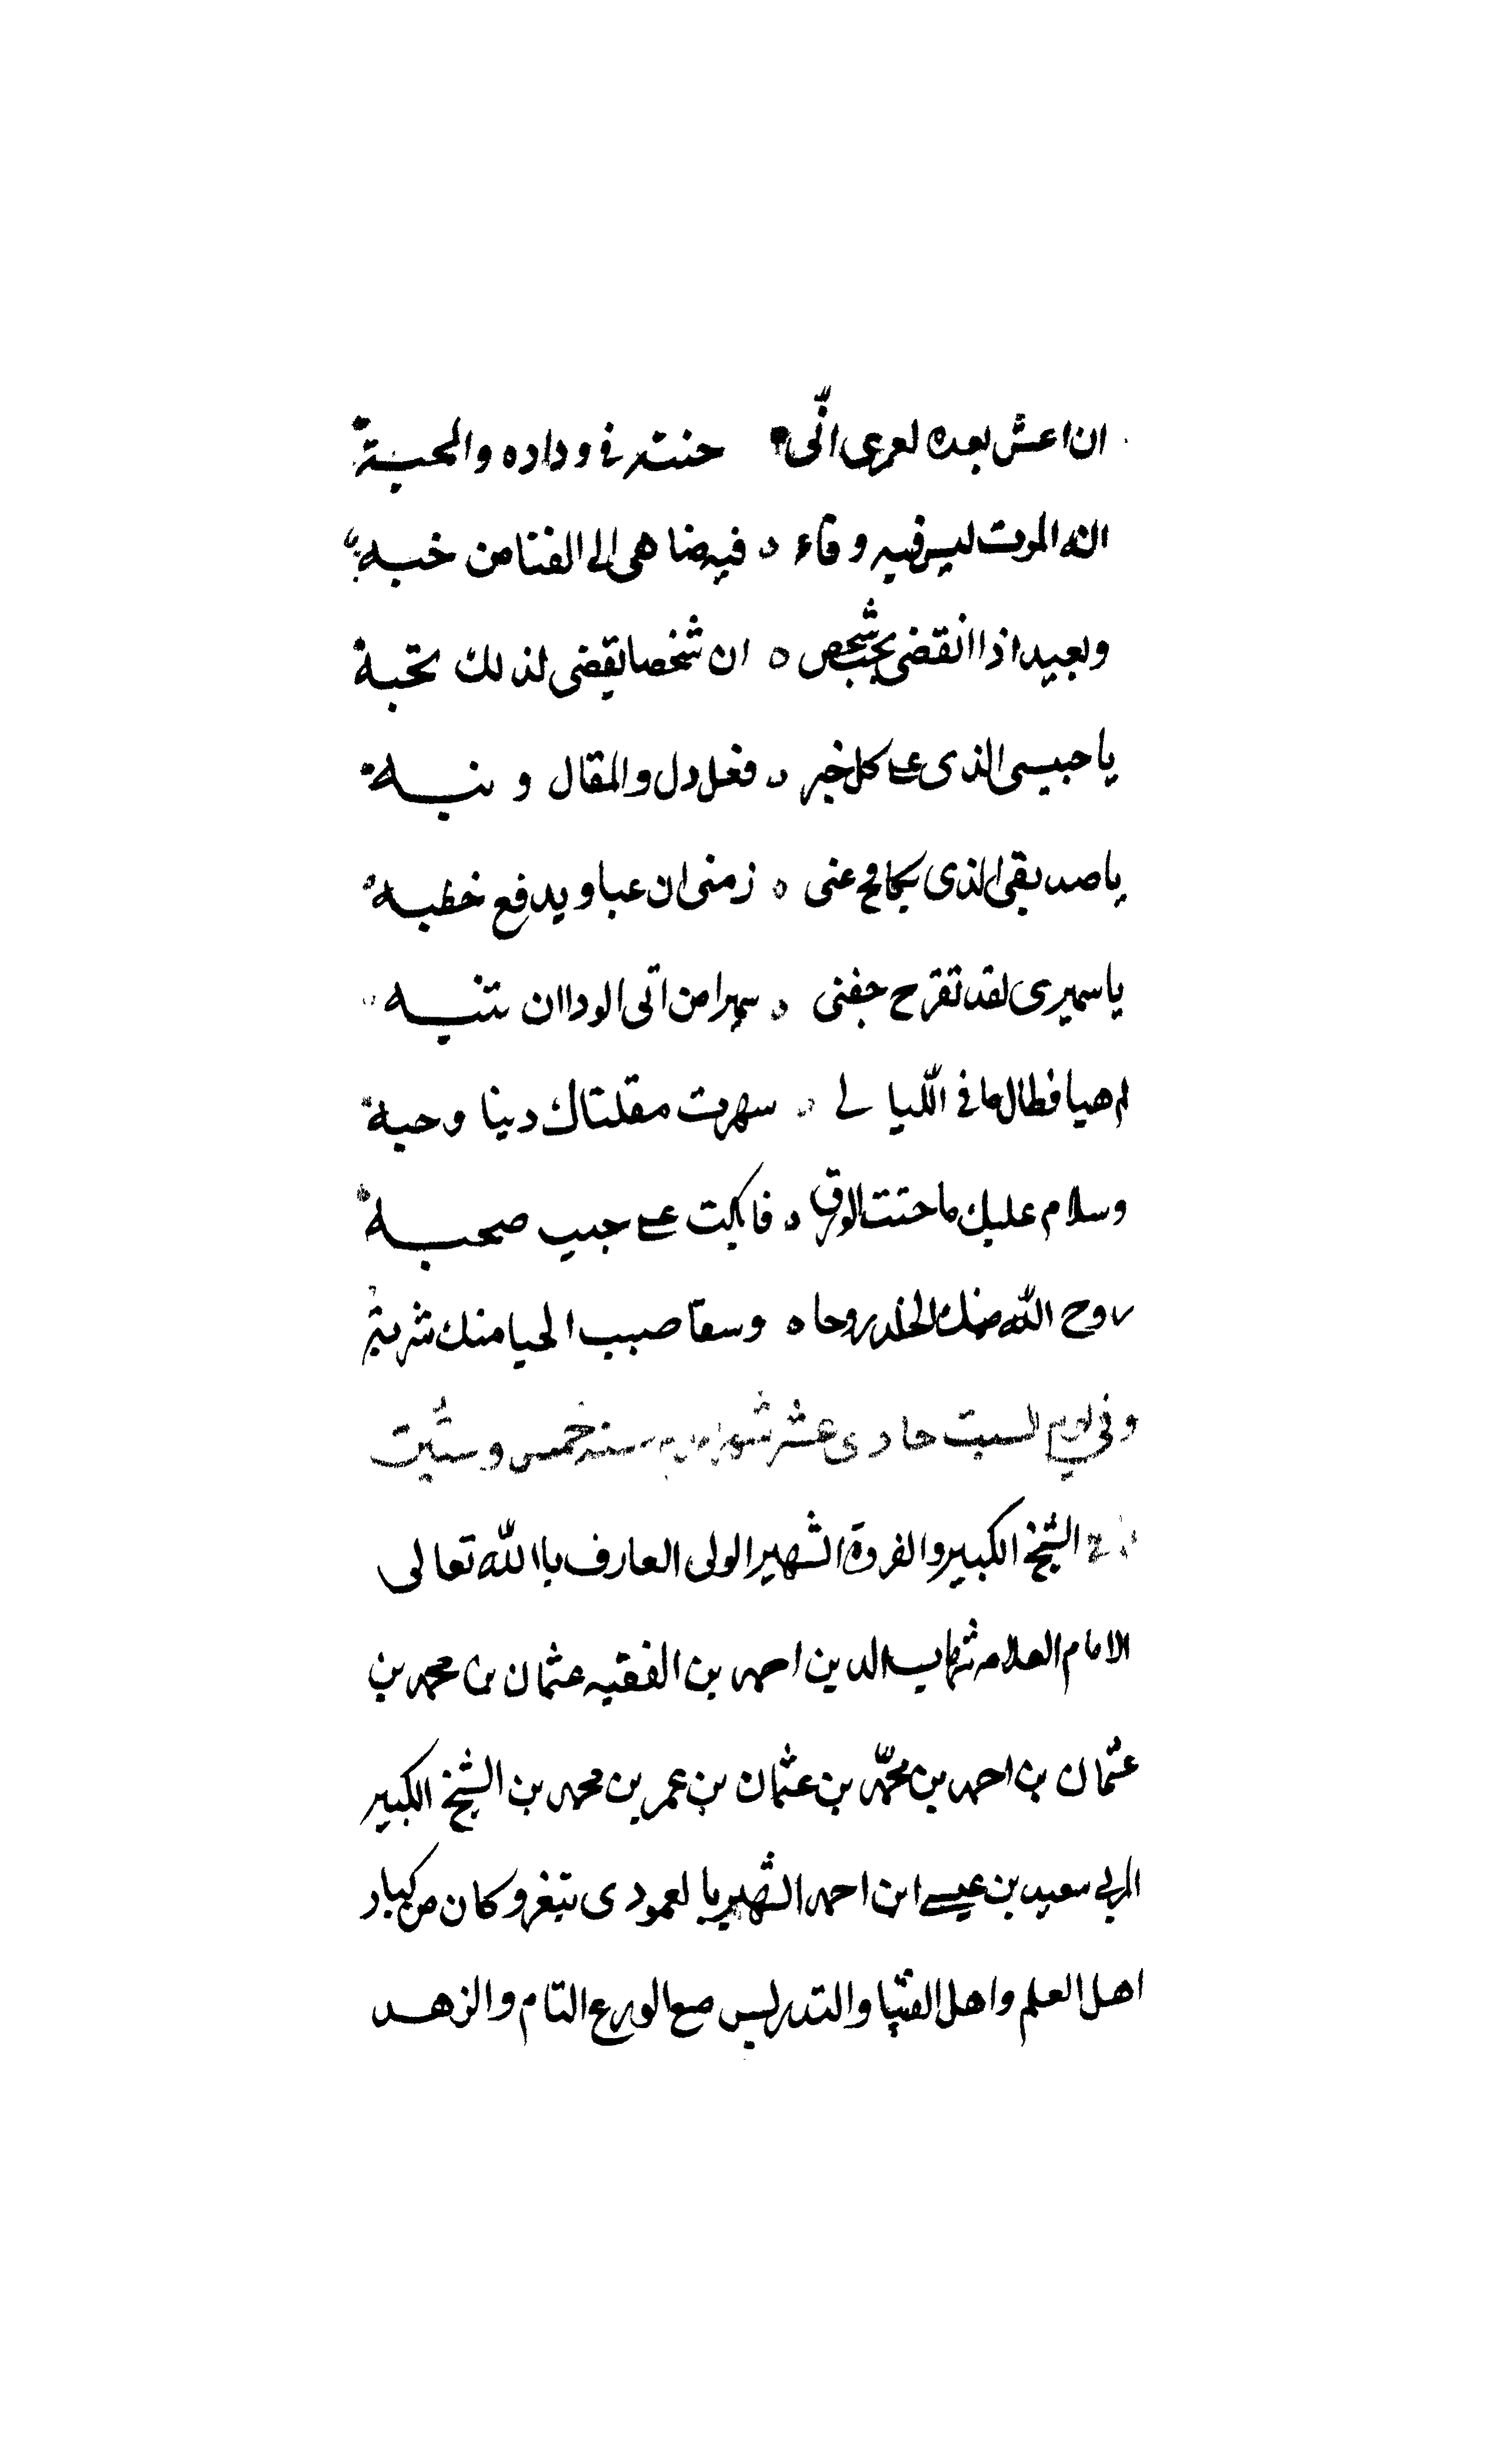 ان اعش بعده لعمرى انّى خنته فى وداده والمحبة
انه الموت ليس فيه وفاء فيضاهى الى الفنا من خبه
وبعيد اذا انقضى نحب شخص ان شخصا يقضى لذلك نحبة
يا حبيبى الذى على كل خير فعل دل والمقال و نبه
يا صديقى الذى يكافح عنى زمنى ان عبا ويدفع خطبه
يا سميرى لقد تقرح جفنى سهرا من اتى الودا ان تنبه
لم هيا فطال ما فى اللّيالى سهرت مقلتاك دينا وحبة
وسلام عليك ما حنت الورق فابكت على حبيب صحبه
روح الله منك الخلد روحا وسقا صبب الحيا منك تربته
وفي يوم السبت حادى عشر شهر سنه خمس وستين
الشيخ الكبير والفردة الشهير الولى العارف باالله تعالى
الامام العلامه شهاب الدين احمد بن الفقيه عثمان بن محمد بن
عثمان بن احمد بن محمّد بن عثمان بن عمر بن محمد بن الشيخ الكبير
المربي سعيد بن عيسى ابن احمد الشهير بالعمودى بتيغر وكان من كبار
اهل العلم واهل الفتيا والتدريس مع الورع التام والزهد